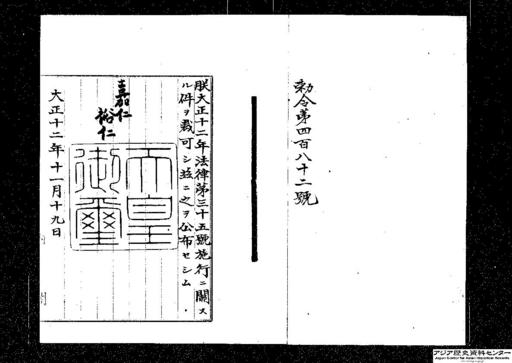 勅令第四百八十二號
朕大正十二年法律第三十五號施行ニ關ス
ル件ヲ裁可シ玆ニ之ヲ公布セシム
嘉仁
裕仁
天皇
御璽
大正十二年十一月十九日
アジア歴史資料センター
Japan Center for Asian Historical Records